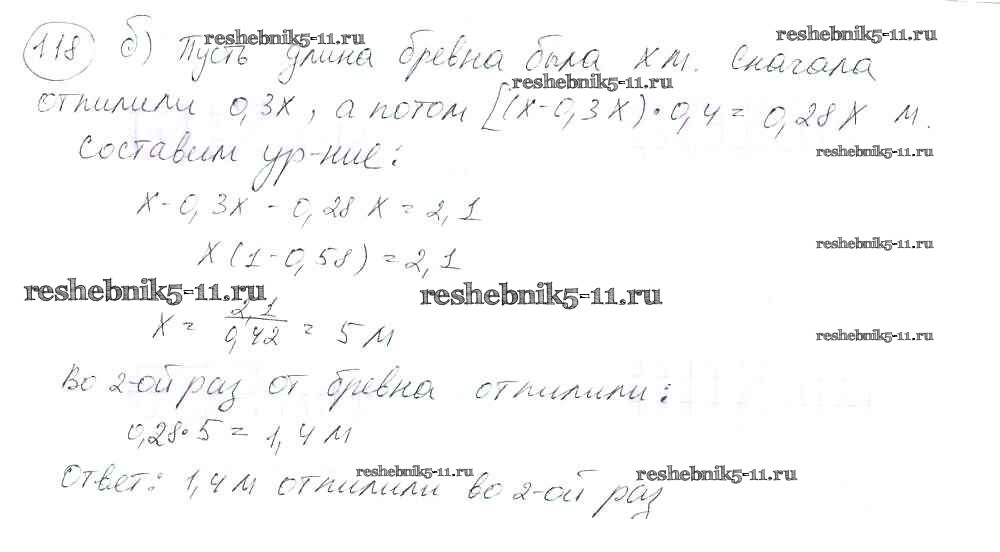 118 б) Пусть длина бревна была x м. Сначала
отпилили 0,3x, а потом [(x-0,3x)·0,4=0,28x м.
Составим ур-ние:
x-0,3x-0,28x=2,1
x(1-0,58)=2,1
x=2,1/0,42=5 м
Во 2-ой раз от бревна отпилили:
0,28·5=1,4 м
Ответ: 1,4 м отпилили во 2-ой раз
reshebnik5-11.ru
reshebnik5-11.ru
reshebnik5-11.ru
reshebnik5-11.ru
reshebnik5-11.ru
reshebnik5-11.ru
reshebnik5-11.ru
reshebnik5-11.ru
reshebnik5-11.ru
reshebnik5-11.ru